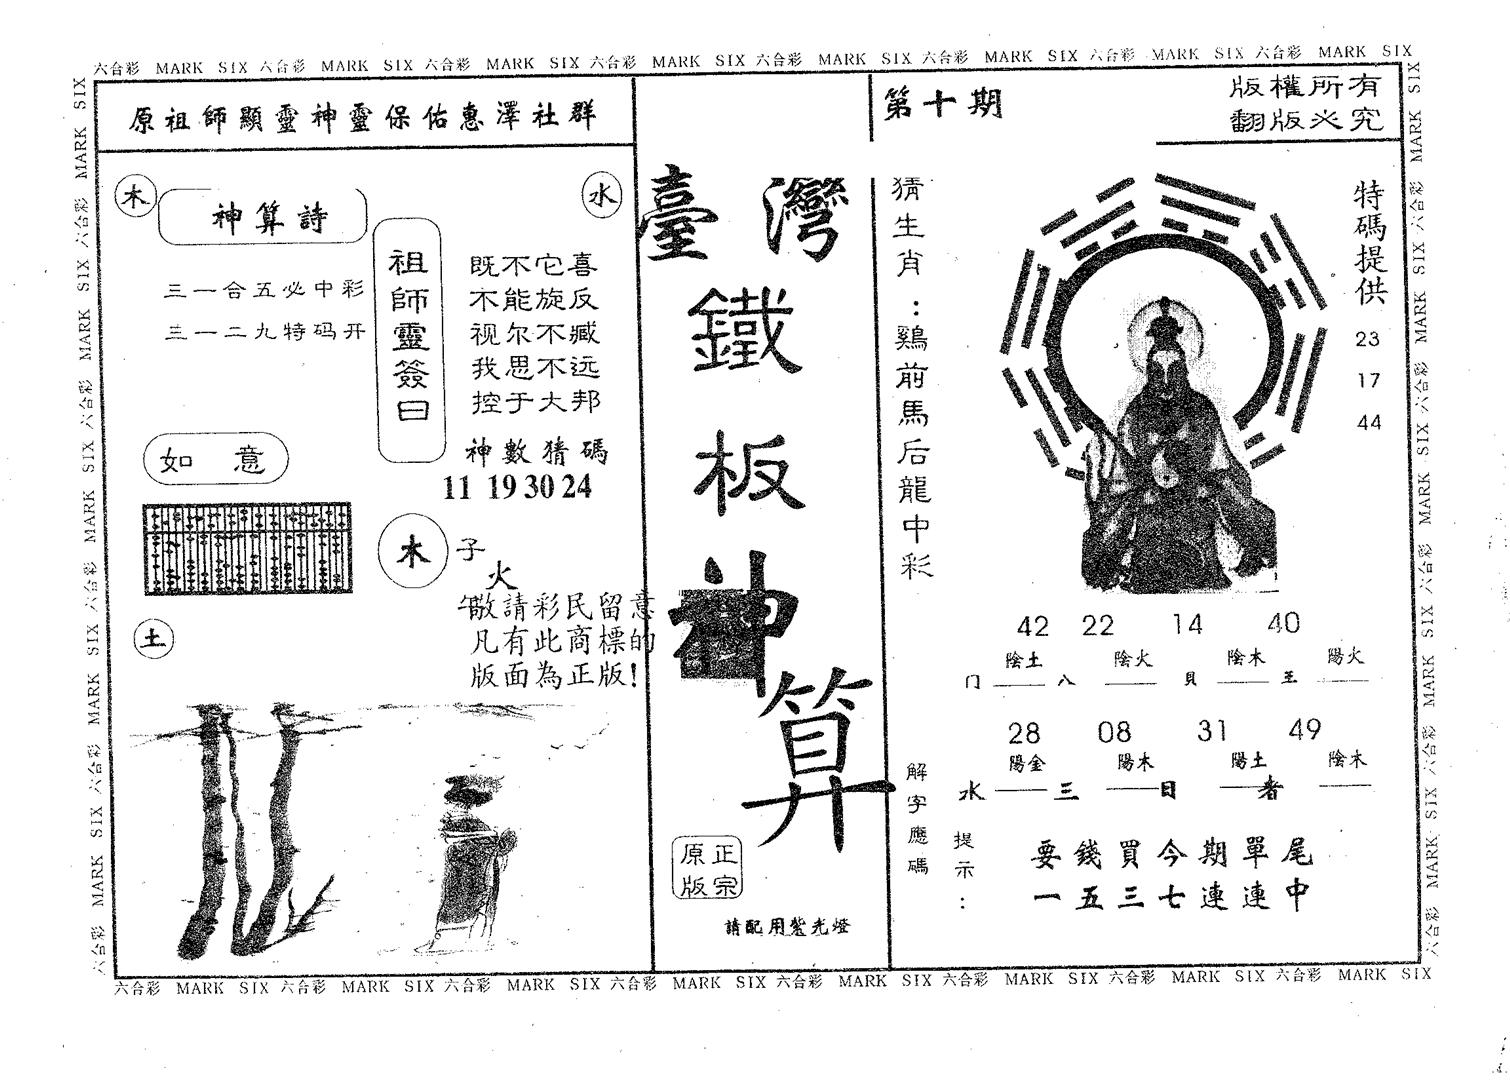 六合彩 MARK SIX 六合彩 MARK SIX 六合彩 MARK SIX 六合彩 MARK SIX 六合彩 MARK SIX 六合彩 MARK SIX 六合彩 MARK SIX 六合彩 MARK SIX
原祖師顯靈神靈保佑惠澤社群
木
水
神算詩
三一合五必中彩
三一二九特码开
祖師靈簽曰
既不它喜
不能旋反
视尔不臧
我思不远
控于大邦
神數猜碼
11 19 30 24
如意
木
子
火
午
敬請彩民留意
凡有此商標的
版面為正版!
土
臺灣
鐵
板
神
算
正宗
原版
請配用紫光燈
第十期
版權所有
翻版必究
猜生肖:鷄前馬后龍中彩
特碼提供
23
17
44
42 22 14 40
陰土 陰火 陰木 陽火
门 八 貝 王
28 08 31 49
陽金 陽木 陽土 陰木
水 三 日 者
解字應碼
提示:
要錢買今期單尾
一五三七連連中
六合彩 MARK SIX 六合彩 MARK SIX 六合彩 MARK SIX 六合彩 MARK SIX 六合彩 MARK SIX 六合彩 MARK SIX 六合彩 MARK SIX 六合彩 MARK SIX